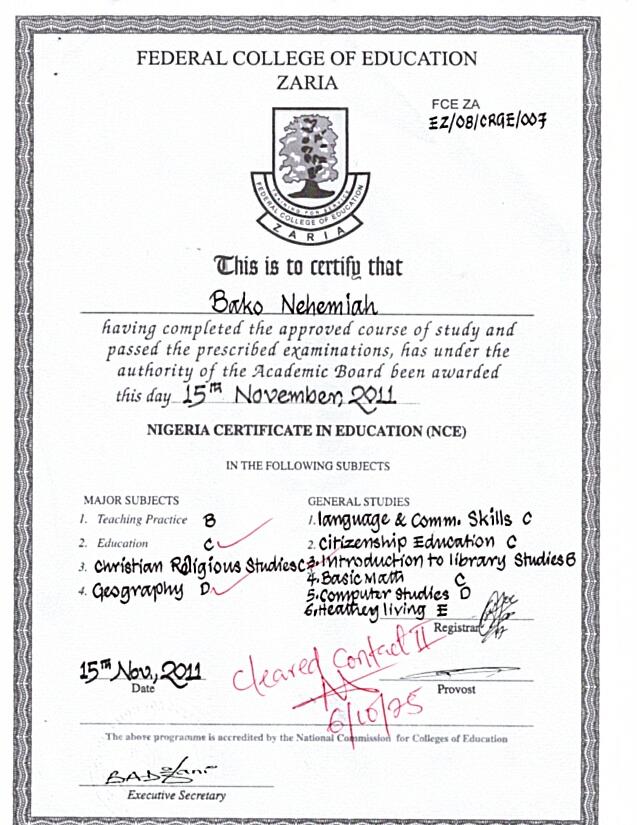 FEDERAL COLLEGE OF EDUCATION
ZARIA
FCE ZA
EZ/08/CRGE/007
TRAINING FOR SERVICE
FEDERAL COLLEGE OF EDUCATION
ZARIA
This is to certify that
Bako Nehemiah
having completed the approved course of study and
passed the prescribed examinations, has under the
authority of the Academic Board been awarded
this day 15TH November, 2011
NIGERIA CERTIFICATE IN EDUCATION (NCE)
IN THE FOLLOWING SUBJECTS
MAJOR SUBJECTS
1. Teaching Practice B
2. Education C
3. Christian Religious Studies C
4. Geography D
GENERAL STUDIES
1. language & Comm. Skills C
2. Citizenship Education C
3. Introduction to library Studies B
4. Basic Math C
5. Computer Studies D
6. Healthey living E
Registrar
15TH Nov., 2011
Date
Cleared Contact II
6/10/25
Provost
The above programme is accredited by the National Commission for Colleges of Education
Executive Secretary